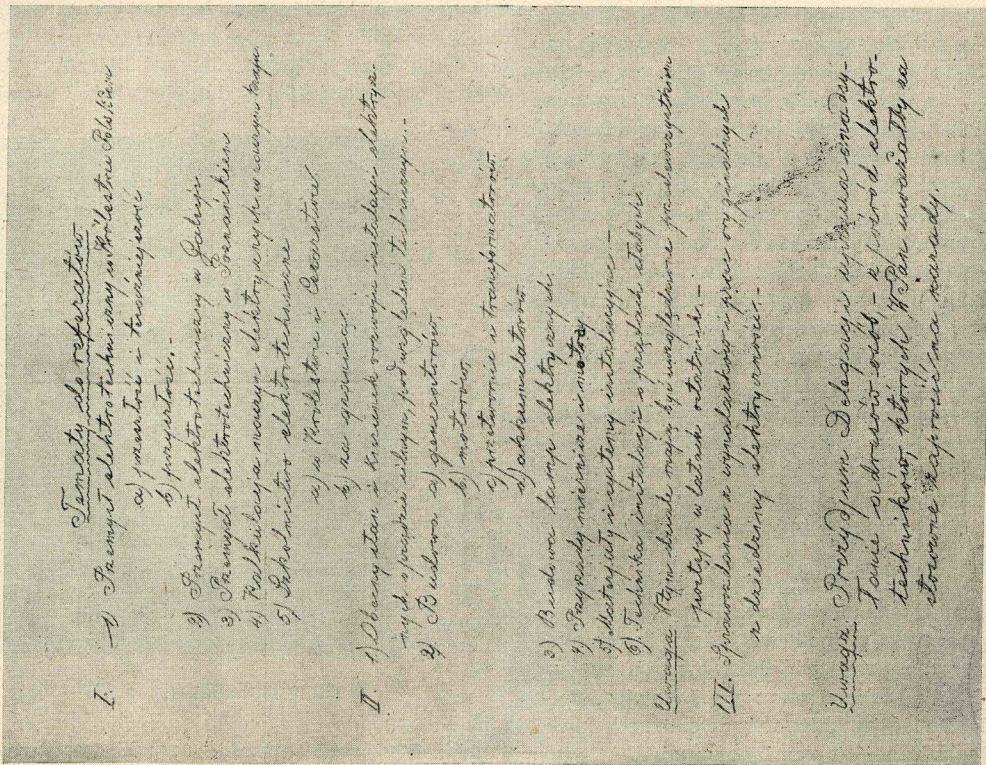 Tematy do referatów
I. 1) Przemysł elektrotechniczny w Królestwie Polskiem
a) przeszłość i teraźniejszość
b) przyszłość.-
2) Przemysł elektrotechniczny w Galicyi
3) Przemysł elektrotechniczny w Poznańskiem
4) Kalkulacja maszyn elektrycznych w naszym kraju
5) Szkolnictwo elektrotechniczne
a) w Królestwie i Cesarstwie
b) za granicą.
II. 1) Obecny stan i kierunek rozwoju instalacji elektrycz-
nych o prądzie silnym, pod względem technicznym.-
2) Budowa a) generatorów,
b) motorów,
c) przetwornic i transformatorów
d) akkumulatorów
3) Budowa lamp elektrycznych
4) Przyrządy miernicze i motory
5) Materyały i systemy instalacyjne -
6) Technika instalacji o prądach słabych
Uwaga W tym dziale mają być uwzględnione przedewszystkiem
postępy w latach ostatnich.-
III. Sprawozdania z wynalazków i prac oryginalnych
z dziedziny elektryczności.-
Uwaga: Prezydjum Delegacji uprasza o nadsy-
łanie adresów osób - z pośród elektro-
techników, których WPan uważałby za
stosowne zaprosić na narady.